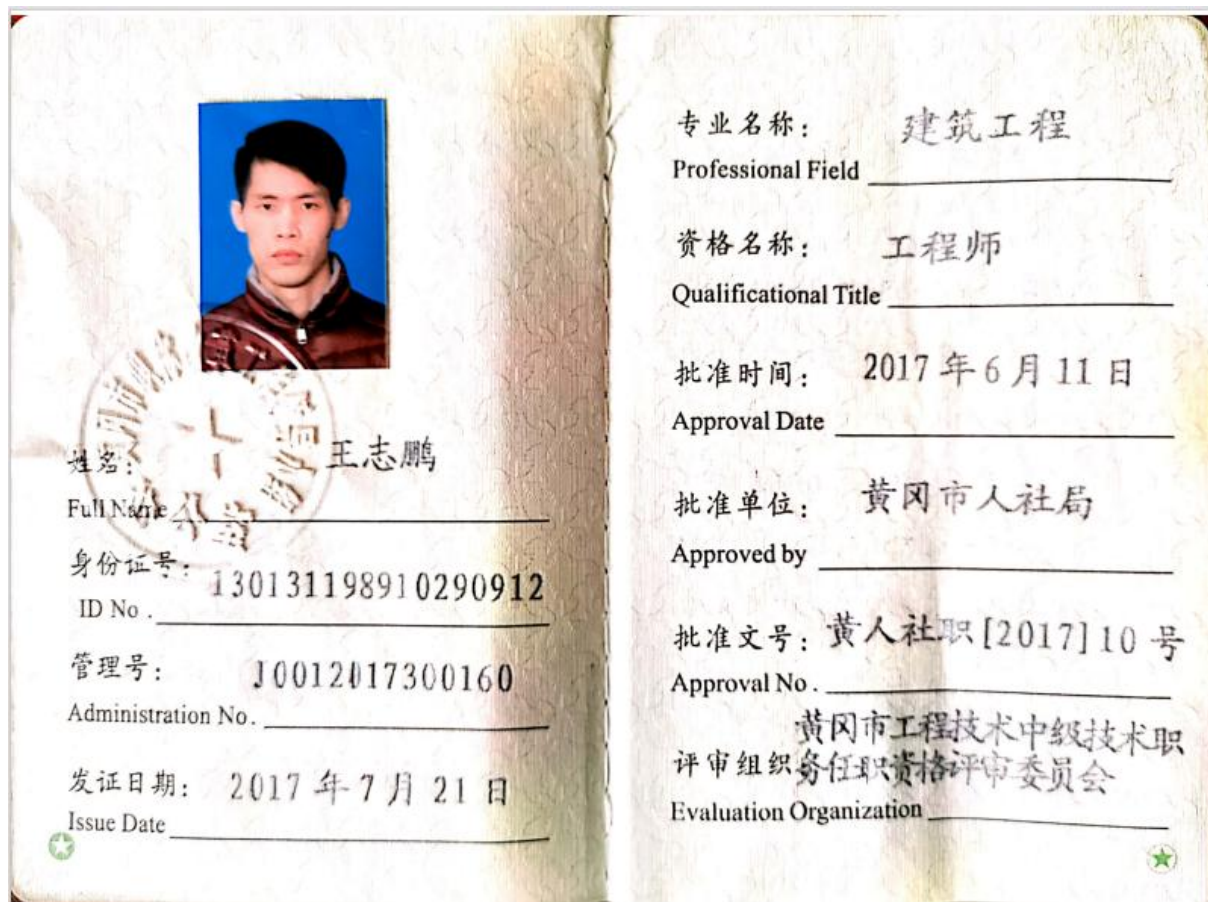 姓名: 王志鹏
Full Name
身份证号: 130131198910290912
ID No.
管理号: J0012017300160
Administration No.
发证日期: 2017年7月21日
Issue Date
专业名称: 建筑工程
Professional Field
资格名称: 工程师
Qualificational Title
批准时间: 2017年6月11日
Approval Date
批准单位: 黄冈市人社局
Approved by
批准文号: 黄人社职[2017]10号
Approval No.
黄冈市工程技术中级技术职
评审组织: 务任职资格评审委员会
Evaluation Organization